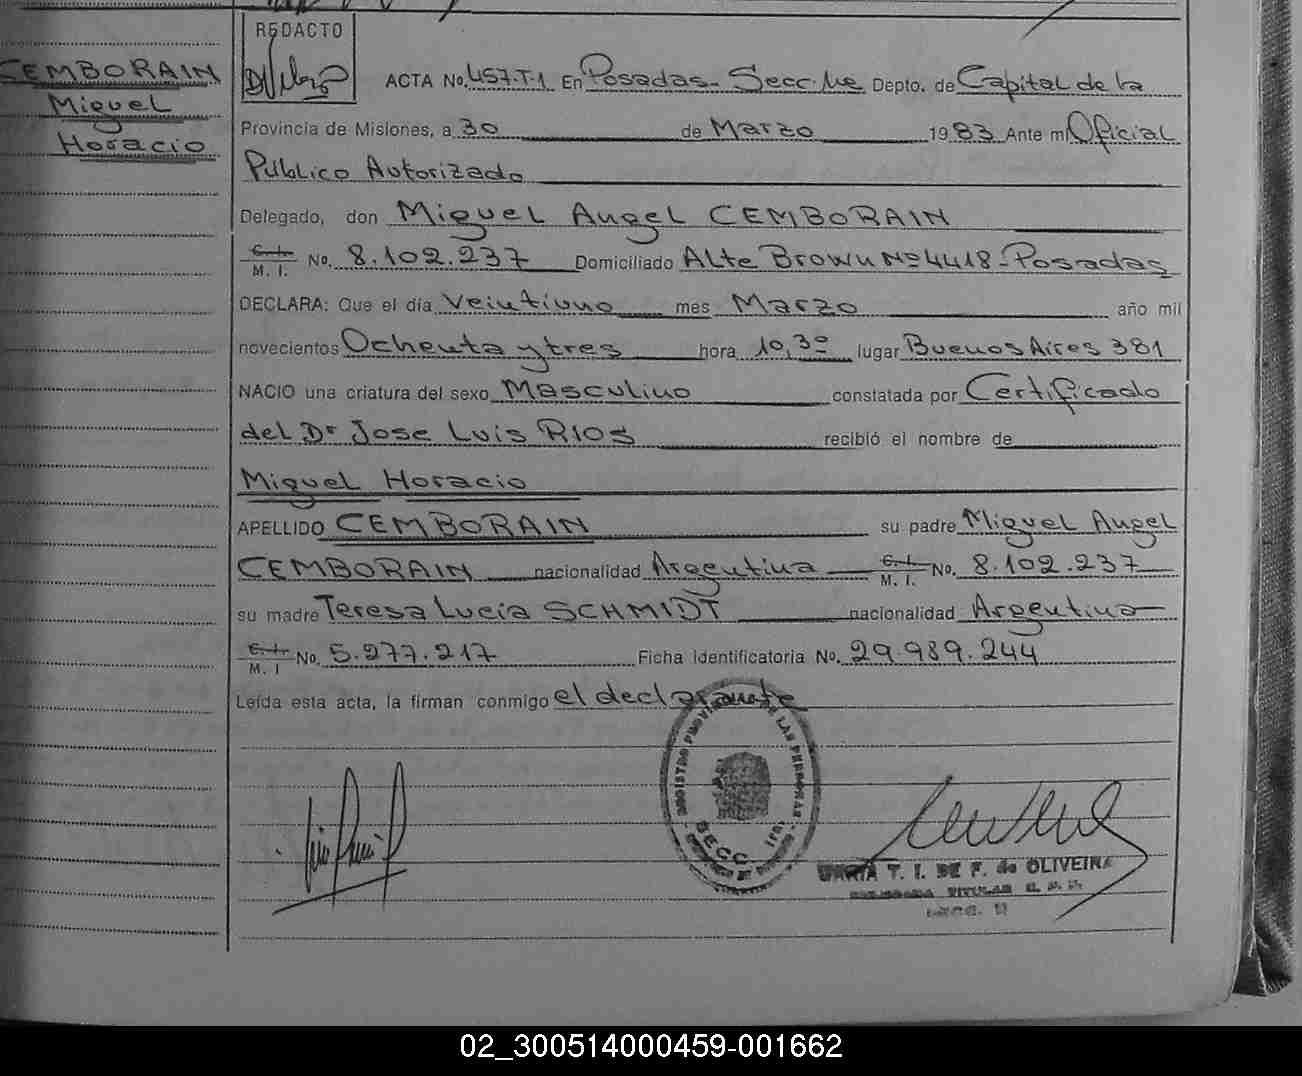 CEMBORAIN
Miguel
Horacio
REDACTO
ACTA No. 457-T-1 En Posadas- Secc Depto. de Capital de la
Provincia de Misiones, a 30 de Marzo 1983 Ante mi Oficial
Publico Autorizado
Delegado, don Miguel Angel CEMBORAIN
C. I.
M. I. No. 8.102.237 Domiciliado Alte Brown Nº 4418-Posadas
DECLARA: Que el día Veintiuno mes Marzo año mil
novecientos Ochenta y tres hora 10,30 lugar Buenos Aires 381
NACIO una criatura del sexo Masculino constatada por Certificado
del Dr Jose Luis RIOS recibió el nombre de
Miguel Horacio
APELLIDO CEMBORAIN su padre Miguel Angel
CEMBORAIN nacionalidad Argentina C. I. M. I. No. 8.102.237
su madre Teresa Lucia SCHMIDT nacionalidad Argentina
C. I. M. I No. 5.277.217 Ficha Identificatoria No. 29.989.244
Leída esta acta, la firman conmigo el declarante
REGISTRO PROVINCIAL DE LAS PERSONAS
SECC.
MARIA T. I. DE F. de OLIVEIRA
TITULAR
02_300514000459-001662